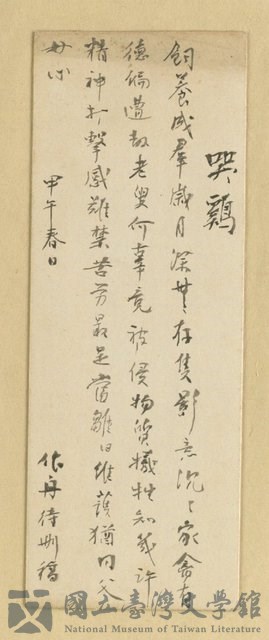 哭鷄
飼養成羣歲月深存隻影意沉〻家禽有
德徧遭劫老叟何辜竟被侵物質犧牲知幾許
精神打擊感難禁苦勞最是當雛日維護猶同父
母心　甲午春日
作舟待刪稿
國立臺灣文學館
National Museum of Taiwan Literature